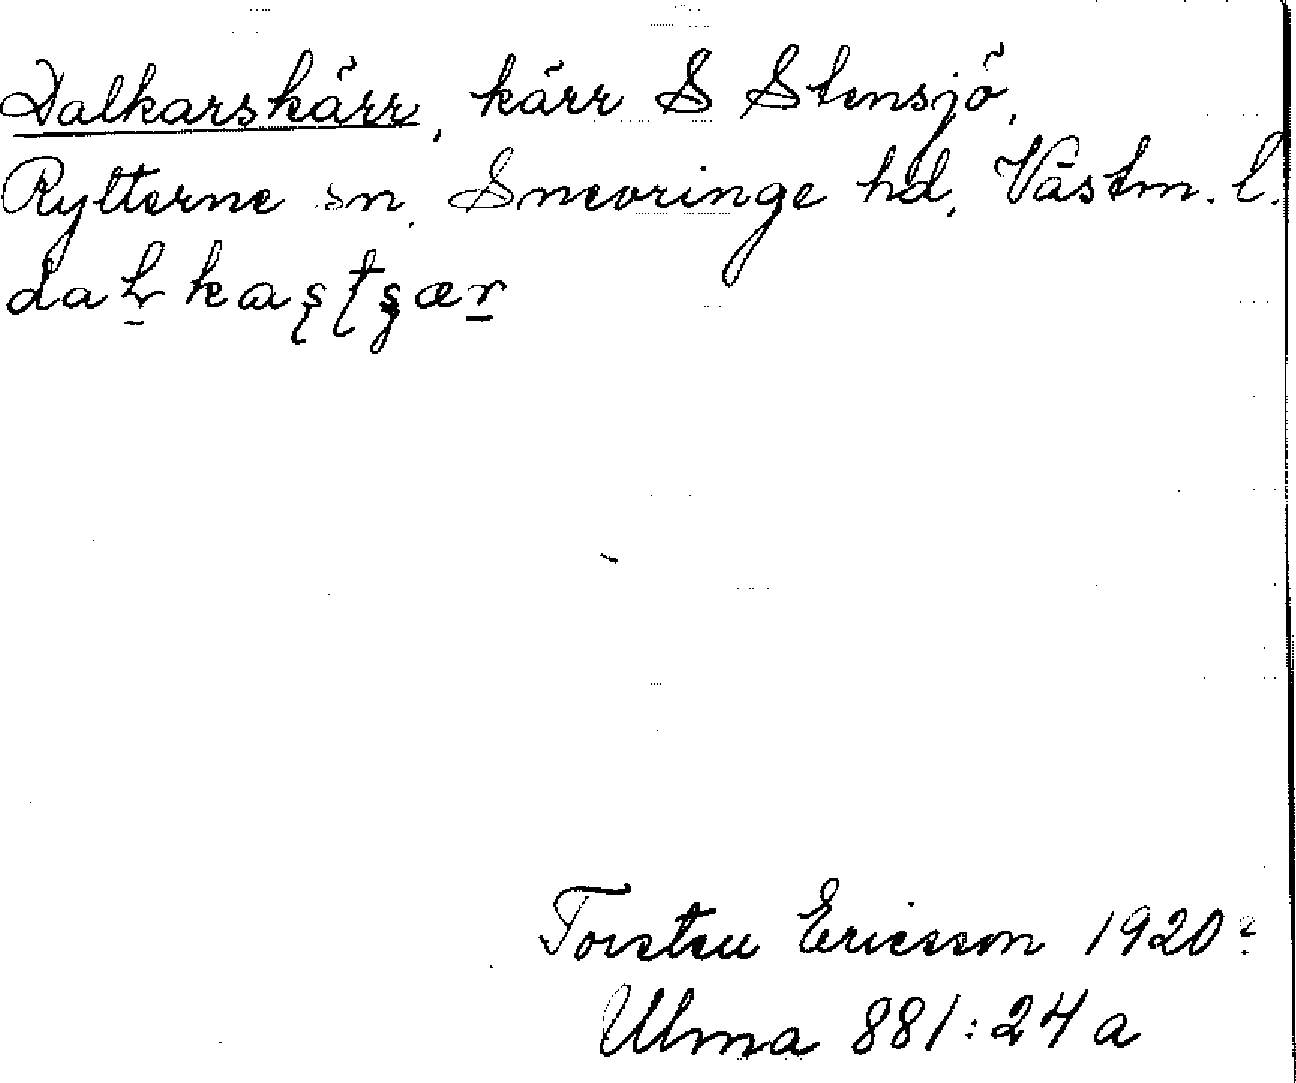 Dalkarskärr, kärr S Stensjö,
Rytterne sn, Snevringe hd, Västm. l.
Torsten Ericsson 1920?
Ulma 881:24 a